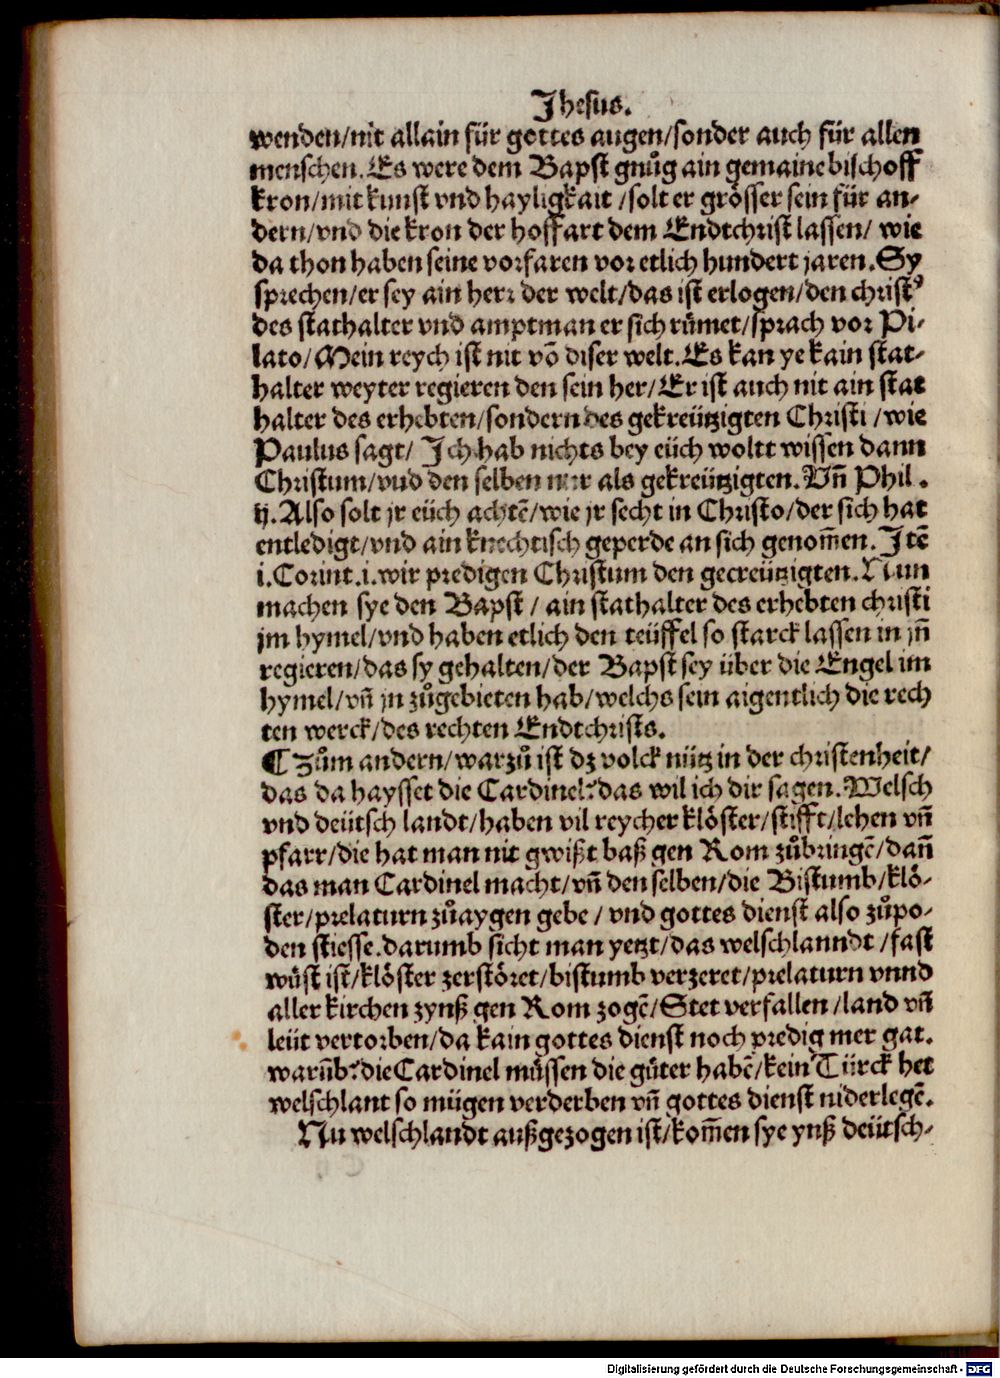 Jhesus.
wenden/nit allain für gottes augen/sonder auch für allen
menschen. Es were dem Bapst gnůg ain gemaine bischoff
kron/mit kunst vnd hayligkait /solt er grösser sein für an-
dern/vnd die kron der hoffart dem Endtchrist lassen/ wie
da thon haben seine vorfaren vor etlich hundert jaren. Sy
sprechen/er sey ain herr der welt/das ist erlogen/den christꝰ
des stathalter vnd amptman er sich rümet/sprach vor Pi-
lato/Mein reych ist nit võ diser welt. Es kan ye kain stat-
halter weyter regieren den sein her/Er ist auch nit ain stat
halter des erhebten/sondern des gekreützigten Christi /wie
Paulus sagt/ Ich hab nichts bey eüch woltt wissen dann
Christum/vnd den selben nur als gekreützigten. Vñ Phil.
ij. Also solt jr eüch achtẽ/wie jr secht in Christo/der sich hat
entledigt/vnd ain knechtisch geperde an sich genom̃en. Itẽ
i. Corint. i. wir predigen Christum den gecreützigten. Nun
machen sye den Bapst / ain stathalter des erhebten christi
jm hymel/vnd haben etlich den teüffel so starck lassen in jñ
regieren/das sy gehalten/der Bapst sey über die Engel im
hymel/vñ jn zůgebieten hab/welchs sein aigentlich die rech
ten werck/des rechten Endtchrists.
¶ Zům andern/warzů ist dz volck nütz in der christenheit/
das da haysset die Cardinel? das wil ich dir sagen. Welsch
vnd deütsch landt/haben vil reycher klöster/stifft/lehen vñ
pfarr/die hat man nit gwißt baß gen Rom zůbringẽ/dañ
das man Cardinel macht/vñ den selben/die Bistumb/klö-
ster/prelaturn zůaygen gebe / vnd gottes dienst also zůpo-
den stiesse. darumb sicht man yetzt/das welschlanndt /fast
wüst ist/klöster zerstöret/bistumb verzeret/prelaturn vnnd
aller kirchen zynß gen Rom zogẽ/Stet verfallen /land vñ
leüt vertorben/da kain gottes dienst noch predig mer gat.
warũb? die Cardinel müssen die güter habẽ/kein Türck het
welschlant so mügen verderben vñ gottes dienst niderlegẽ.
Nu welschlandt außgezogen ist/kom̃en sye ynß deütsch-
Digitalisierung gefördert durch die Deutsche Forschungsgemeinschaft - DFG